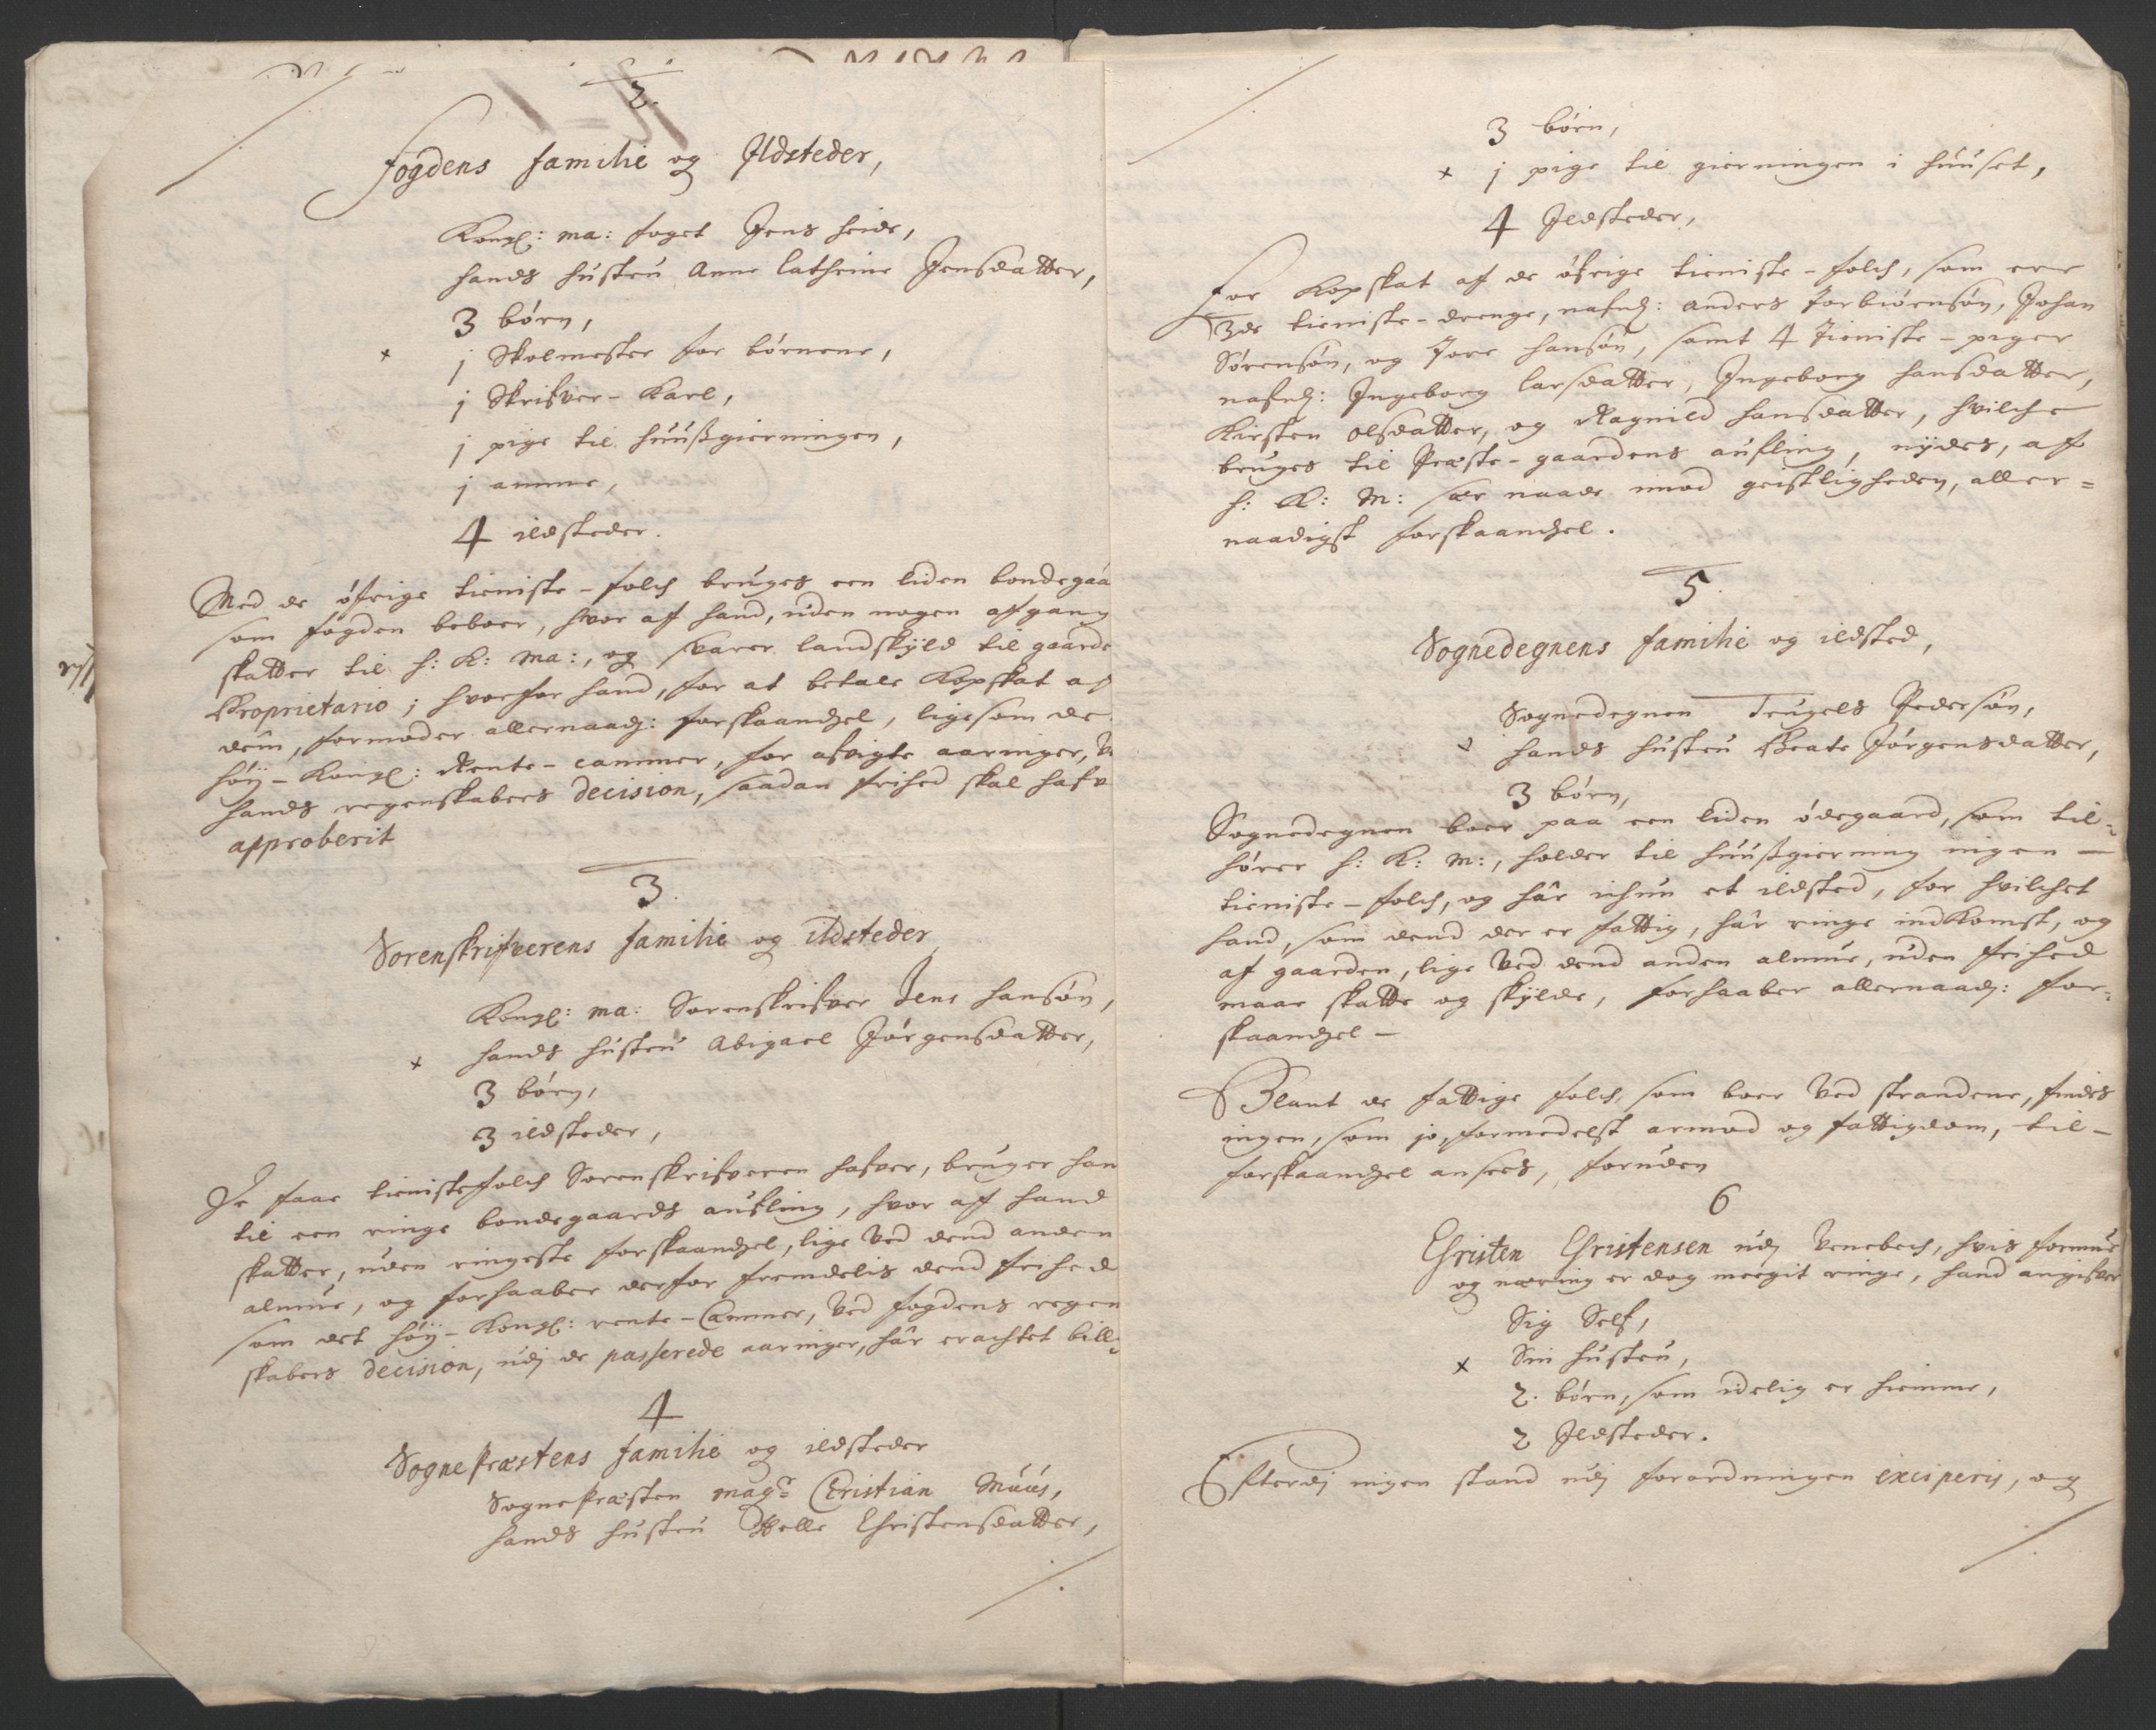 2.
Fogdens familie og Ildsteder,
Kongl: ma: foget Jens heide,
hands hustru Anne Cathrine Jensdatter,
3 börn,
j Skolmester for börnene,
j Skrifver-Karl,
j pige til huußgierningen,
j amme,
4 ildsteder.
Med de öfrige tieniste-folch bruges een liden bondegaa
som fogden beboer, hvor aff hand, uden nogen afgang
skatter til h: K: ma:, og svarer landskyld til gaarde
Proprietario; hvorfor hand, for at betale Kopskat af
dem, formoder allernaadg: forskaandzel, ligesom de
höy-Kongl: Rente-cammer, for afvigte aaringer, V
hands regenskabers decision, saadan frihed skal hafv
approberit
3.
Sorenskrifverens familie og ildsteder
Kongl: ma: Sorenskrifver Jens hansön,
hands hustru Abigael Jörgensdatter,
3 börn,
3 ildsteder,
De faae tienistefolch Sorenskrifveren hafver, bruger han
til een ringe bondegaards aufling, hvor aff hand
skatter, uden ringeste forskaandzel, lige ved dend anden
almue, og forhaaber derfor fremdelis dend frihed
som det höy-Kongl: rente-Cammer, ved fogdens regen
skabers decision, udj de passerede aaringer, hâr erachtet bill-
4
Sognepræstens familie og ildsteder
Sognepræsten magr Christian Muus,
hands hustru Helle Christensdatter,
3 börn,
j pige til gierningen i huuset,
4 Ildsteder,
For Kopskat aff de öfrige tieniste-folch, som ere
3de tieniste-drenge, nafnl: Anders Torbiörnsön, Johan
Sörensön, og Tore hansön, samt 4 Tieniste-piger
nafnl: Ingeborg larsdatter, Ingeborg hansdatter,
Kirsten olsdatter, og Ragnild hansdatter, hvilche
bruges til Præste-gaardens aufling, nydes, af
h: K: M: sær naade imod geistligheden, aller=
naadigst forskaandzel.
5.
Sognedegnens familie og ildsted,
Sognedegnen Trugels Pedersön,
hands hustru Beate Jörgensdatter,
3 börn,
Sognedegnen boer paa een liden ödegaard, som til-
hörer h: K: M:, holder til huußgierning ingen
tieniste-folch, og hâr ichun et ildsted, for hvilchet
hand, som dend der er fattig, hâr ringe indkomst, og
af gaarden, lige ved dend anden almue, uden frihed
maae skatte og skylde, forhaaber allernaadg: for-
skaandzel
Blant de fattige folch, som boer ved strandene, findes
ingen, som jo, formedelst armod og fattigdom, til-
forskaandzel ansees, foruden
6
Christen Christensen udj Venebech, hvis formue
og næring er dog meegit ringe, hand angifver
Sig Self,
Sin hustru,
2. börn, som idelig er hiemme,
2 Ildsteder.
Efterdj ingen stand udj forordningen exciperis, og